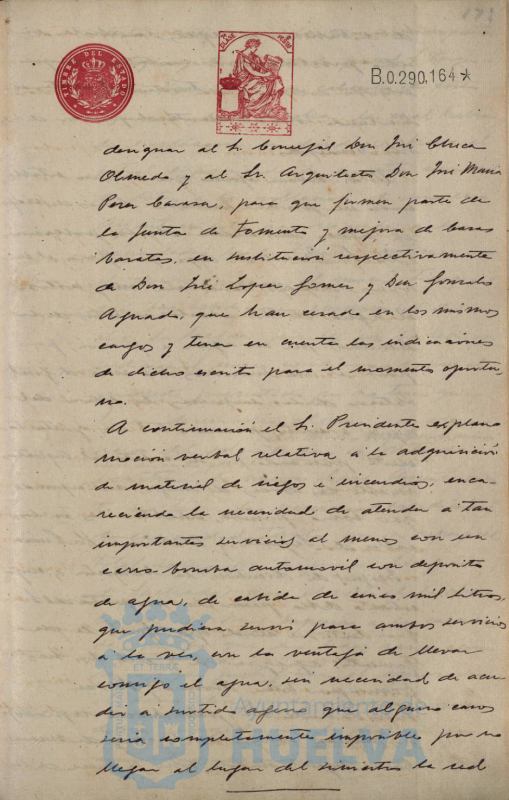 TIMBRE DEL ESTADO
B.0.290,164*
designar al Sr. Concejal Don José Chica
Olmedo y al Sr. Arquitecto Don José María
Perez Carasa, para que formen parte de
la Junta de Fomento y mejora de Casas
baratas, en sustitución respectivamente
de Don José Lopez Gomez y Don Gonzalo
Aguado, que han cesado en los mismos
cargos y tener en cuenta las indicaciones
de dicho escrito para el momento oportu-
no.
A continuación el Sr. Presidente explana
moción verbal relativa á la adquisición
de material de riegos é incendios, enca-
reciendo la necesidad de atender á tan
importantes servicios al menos con un
carro-bomba automóvil con depósito
de agua, de cabida de cinco mil litros,
que pudiera servir para ambos servicios
á la vez, con la ventaja de llevar
consigo el agua, sin necesidad de acu-
dir a surtido ageno que algunos casos
sería completamente imposible por no
llegar al lugar del siniestro la red
Ayuntamiento de
HUELVA